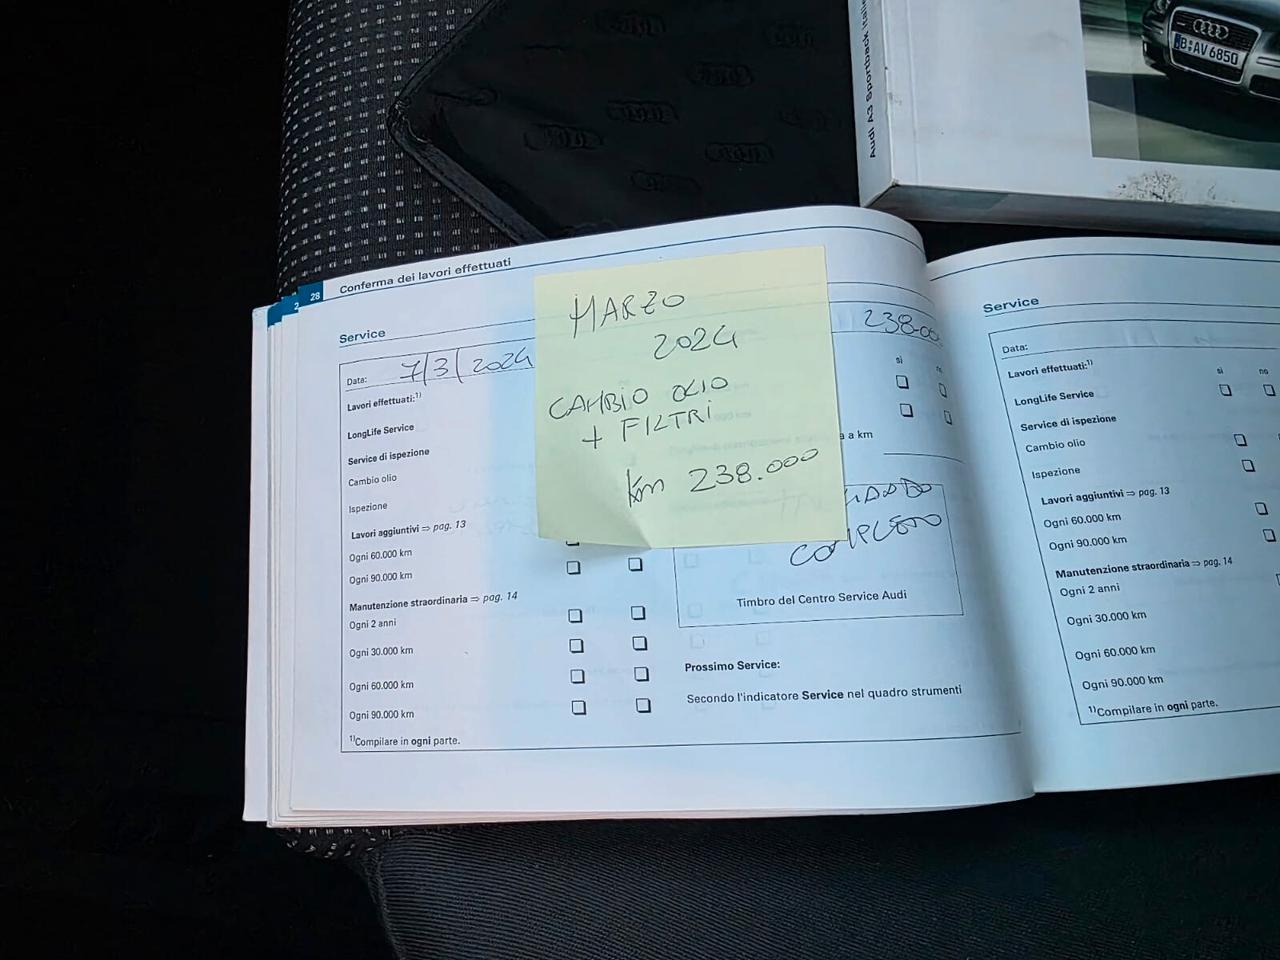 Audi A3 Sportback
B:AV 6850
28
Conferma dei lavori effettuati
Service
Data: 7/3/2024
238.00
Lavori effettuati:¹⁾
LongLife Service
Service di ispezione
Cambio olio
Ispezione
Lavori aggiuntivi ⇒ pag. 13
Ogni 60.000 km
Ogni 90.000 km
Manutenzione straordinaria ⇒ pag. 14
Ogni 2 anni
Ogni 30.000 km
Ogni 60.000 km
Ogni 90.000 km
¹⁾Compilare in ogni parte.
MARZO
2024
CAMBIO OLIO
+ FILTRI
Km 238.000
sì
no
a km
COMPLETO
Timbro del Centro Service Audi
Prossimo Service:
Secondo l'indicatore Service nel quadro strumenti
Service
Data:
Lavori effettuati:¹⁾
sì no
LongLife Service
Service di ispezione
Cambio olio
Ispezione
Lavori aggiuntivi ⇒ pag. 13
Ogni 60.000 km
Ogni 90.000 km
Manutenzione straordinaria ⇒ pag. 14
Ogni 2 anni
Ogni 30.000 km
Ogni 60.000 km
Ogni 90.000 km
¹⁾Compilare in ogni parte.